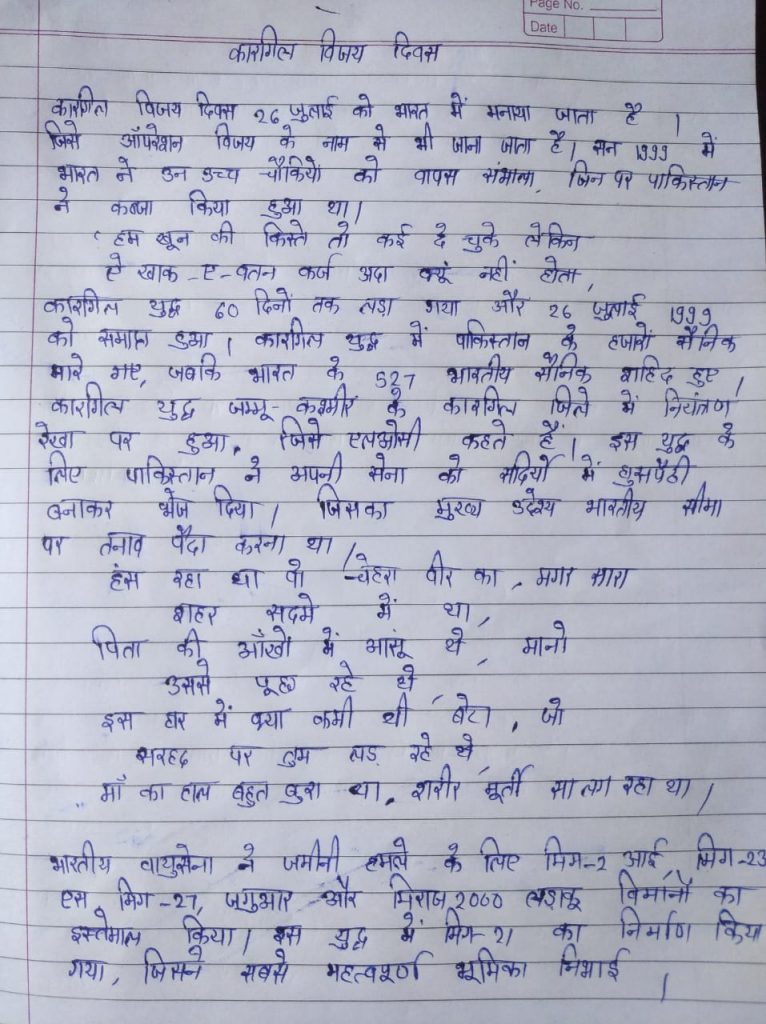 Page No.
Date
कारगिल विजय दिवस
कारगिल विजय दिवस 26 जुलाई को भारत में मनाया जाता है ।
जिसे ऑपरेशन विजय के नाम से भी जाना जाता है। सन 1999 में
भारत ने उन उच्च चौकियों को वापस संभाला, जिन पर पाकिस्तान
ने कब्जा किया हुआ था।
हम खून की किस्ते तो कई दे चुके लेकिन
ऐ खाक-ए-वतन कर्ज अदा क्यूं नहीं होता,
कारगिल युद्ध 60 दिनों तक लड़ा गया और 26 जुलाई 1999
को समाप्त हुआ । कारगिल युद्ध में पाकिस्तान के हजारों सैनिक
मारे गए, जबकि भारत के 527 भारतीय सैनिक शहिद हुए ।
कारगिल युद्ध जम्मू-कश्मीर के कारगिल जिले में नियंत्रण
रेखा पर हुआ, जिसे एलओसी कहते हैं। इस युद्ध के
लिए पाकिस्तान ने अपनी सेना को सर्दियों में घुसपैठी
बनाकर भेज दिया। जिसका मुख्य उद्देश्य भारतीय सीमा
पर तनाव पैदा करना था।
हंस रहा था वो चेहरा वीर का, मगर सारा
शहर सदमे में था,
पिता की आँखों में आंसू थे, मानो
उससे पूछ रहे थे,
इस हार में क्या कमी थी बेटा, जो
सरहद पर तुम लड़ रहे थे,
माँ का हाल बहुत बुरा था, शरीर मूर्ती सा लग रहा था।
भारतीय वायुसेना ने जमीनी हमले के लिए मिग-2 आई, मिग-23
एस, मिग-27, जगुआर और मिराज 2000 लड़ाकू विमानों का
इस्तेमाल किया। इस युद्ध में मिग-21 का निर्माण किया
गया, जिसने सबसे महत्वपूर्ण भूमिका निभाई ।